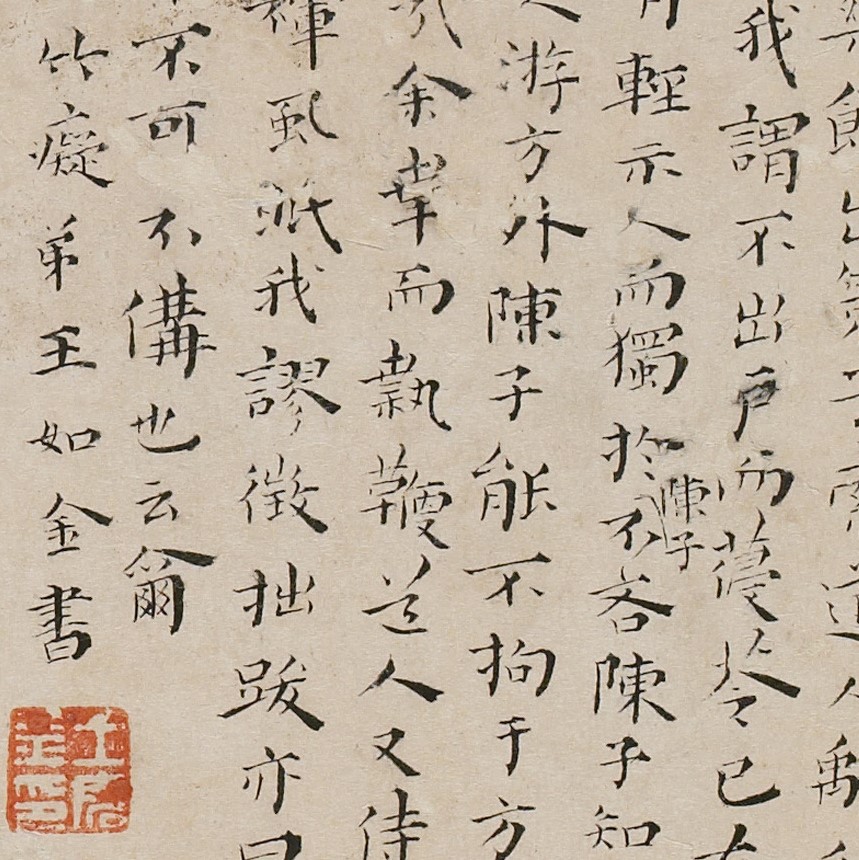 道人禹
我謂不出戶而蔆苓已
輕示人而獨於不吝陳子知
陳子
游方外陳子能不拘于方
余幸而執鞭道人又侍
褌虱眂我謬徵拙跋亦曰
不可不備也云爾
竹癡弟王如金書